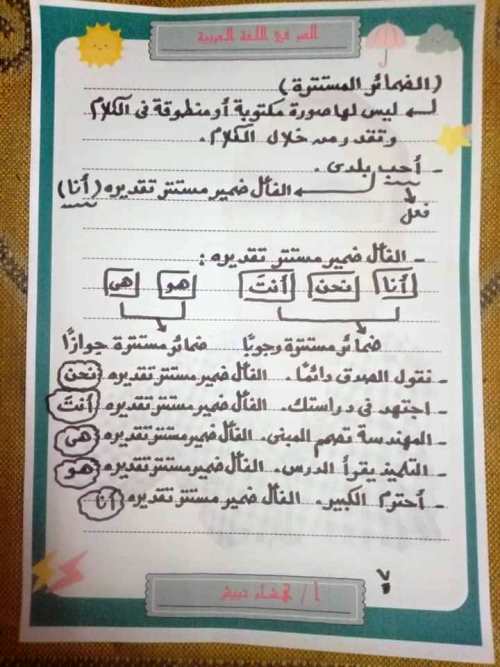 السر في اللغة العربية
(الضمائر المستترة)
ليس لها صورة مكتوبة أو منطوقة في الكلام
وتقدر من خلال الكلام.
- أحب بلدى.
الفاعل ضمير مستتر تقديره (أنا)
فعل
- الفاعل ضمير مستتر تقديره:
أنا نحن أنتَ هو هى
ضمائر مستترة وجوبًا ضمائر مستترة جوازًا
- نقول الصدق دائمًا. الفاعل ضمير مستتر تقديره نحن
- اجتهد فى دراستك. الفاعل ضمير مستتر تقديره أنتَ
- المهندسة تصمم المبنى. الفاعل ضمير مستتر تقديره هى
- التلميذ يقرأ الدرس. الفاعل ضمير مستتر تقديره هو
- أحترم الكبير. الفاعل ضمير مستتر تقديره أنا